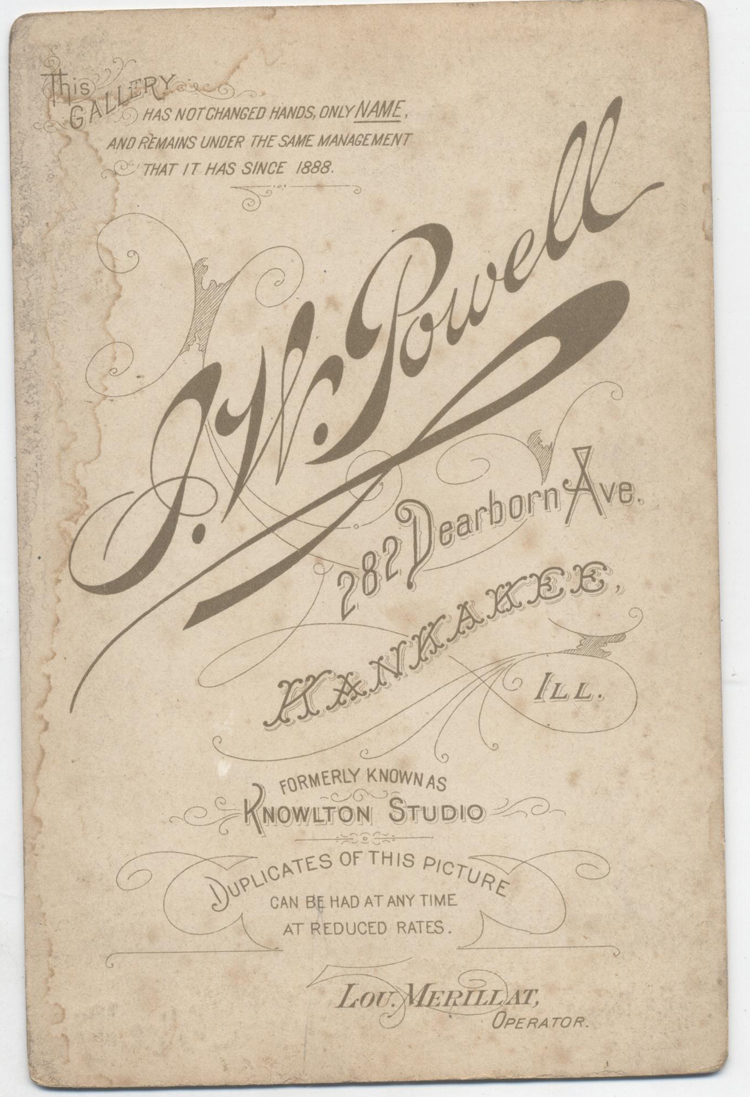 This
GALLERY
HAS NOT CHANGED HANDS, ONLY NAME,
AND REMAINS UNDER THE SAME MANAGEMENT
THAT IT HAS SINCE 1888.
J. W. Powell
282 Dearborn Ave.
KANKAKEE,
ILL.
FORMERLY KNOWN AS
KNOWLTON STUDIO
DUPLICATES OF THIS PICTURE
CAN BE HAD AT ANY TIME
AT REDUCED RATES.
LOU. MERILLAT,
OPERATOR.